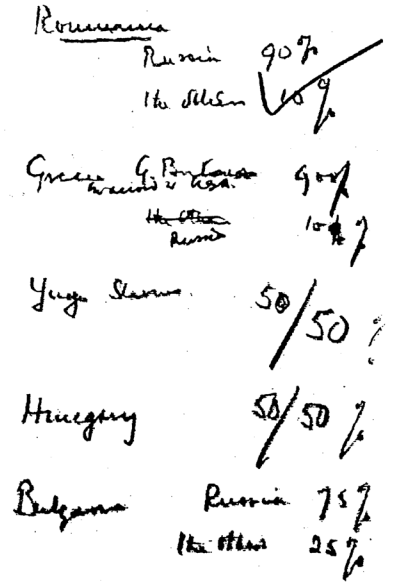 Roumania
Russia 90%
the others 10%
Greece G. Britain 90%
in accord w USA.
the others
Russia 10%
Yugo Slavia 50/50 %
Hungary 50/50 %
Bulgaria Russia 75%
the others 25%